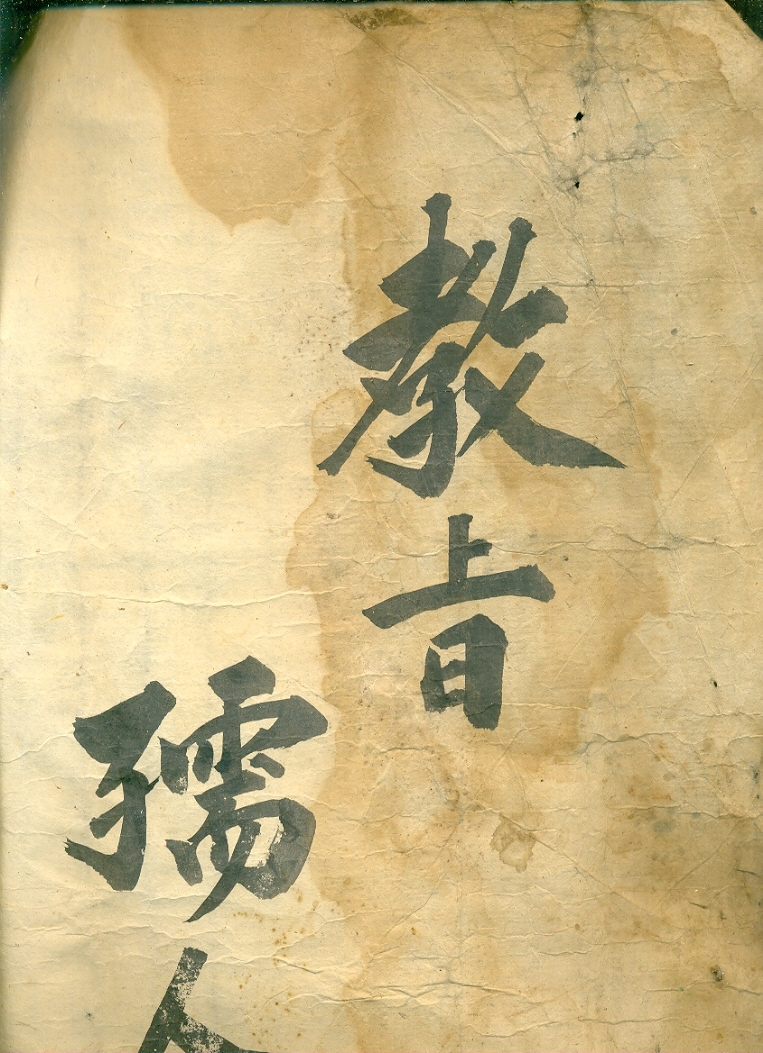 教旨
孺人